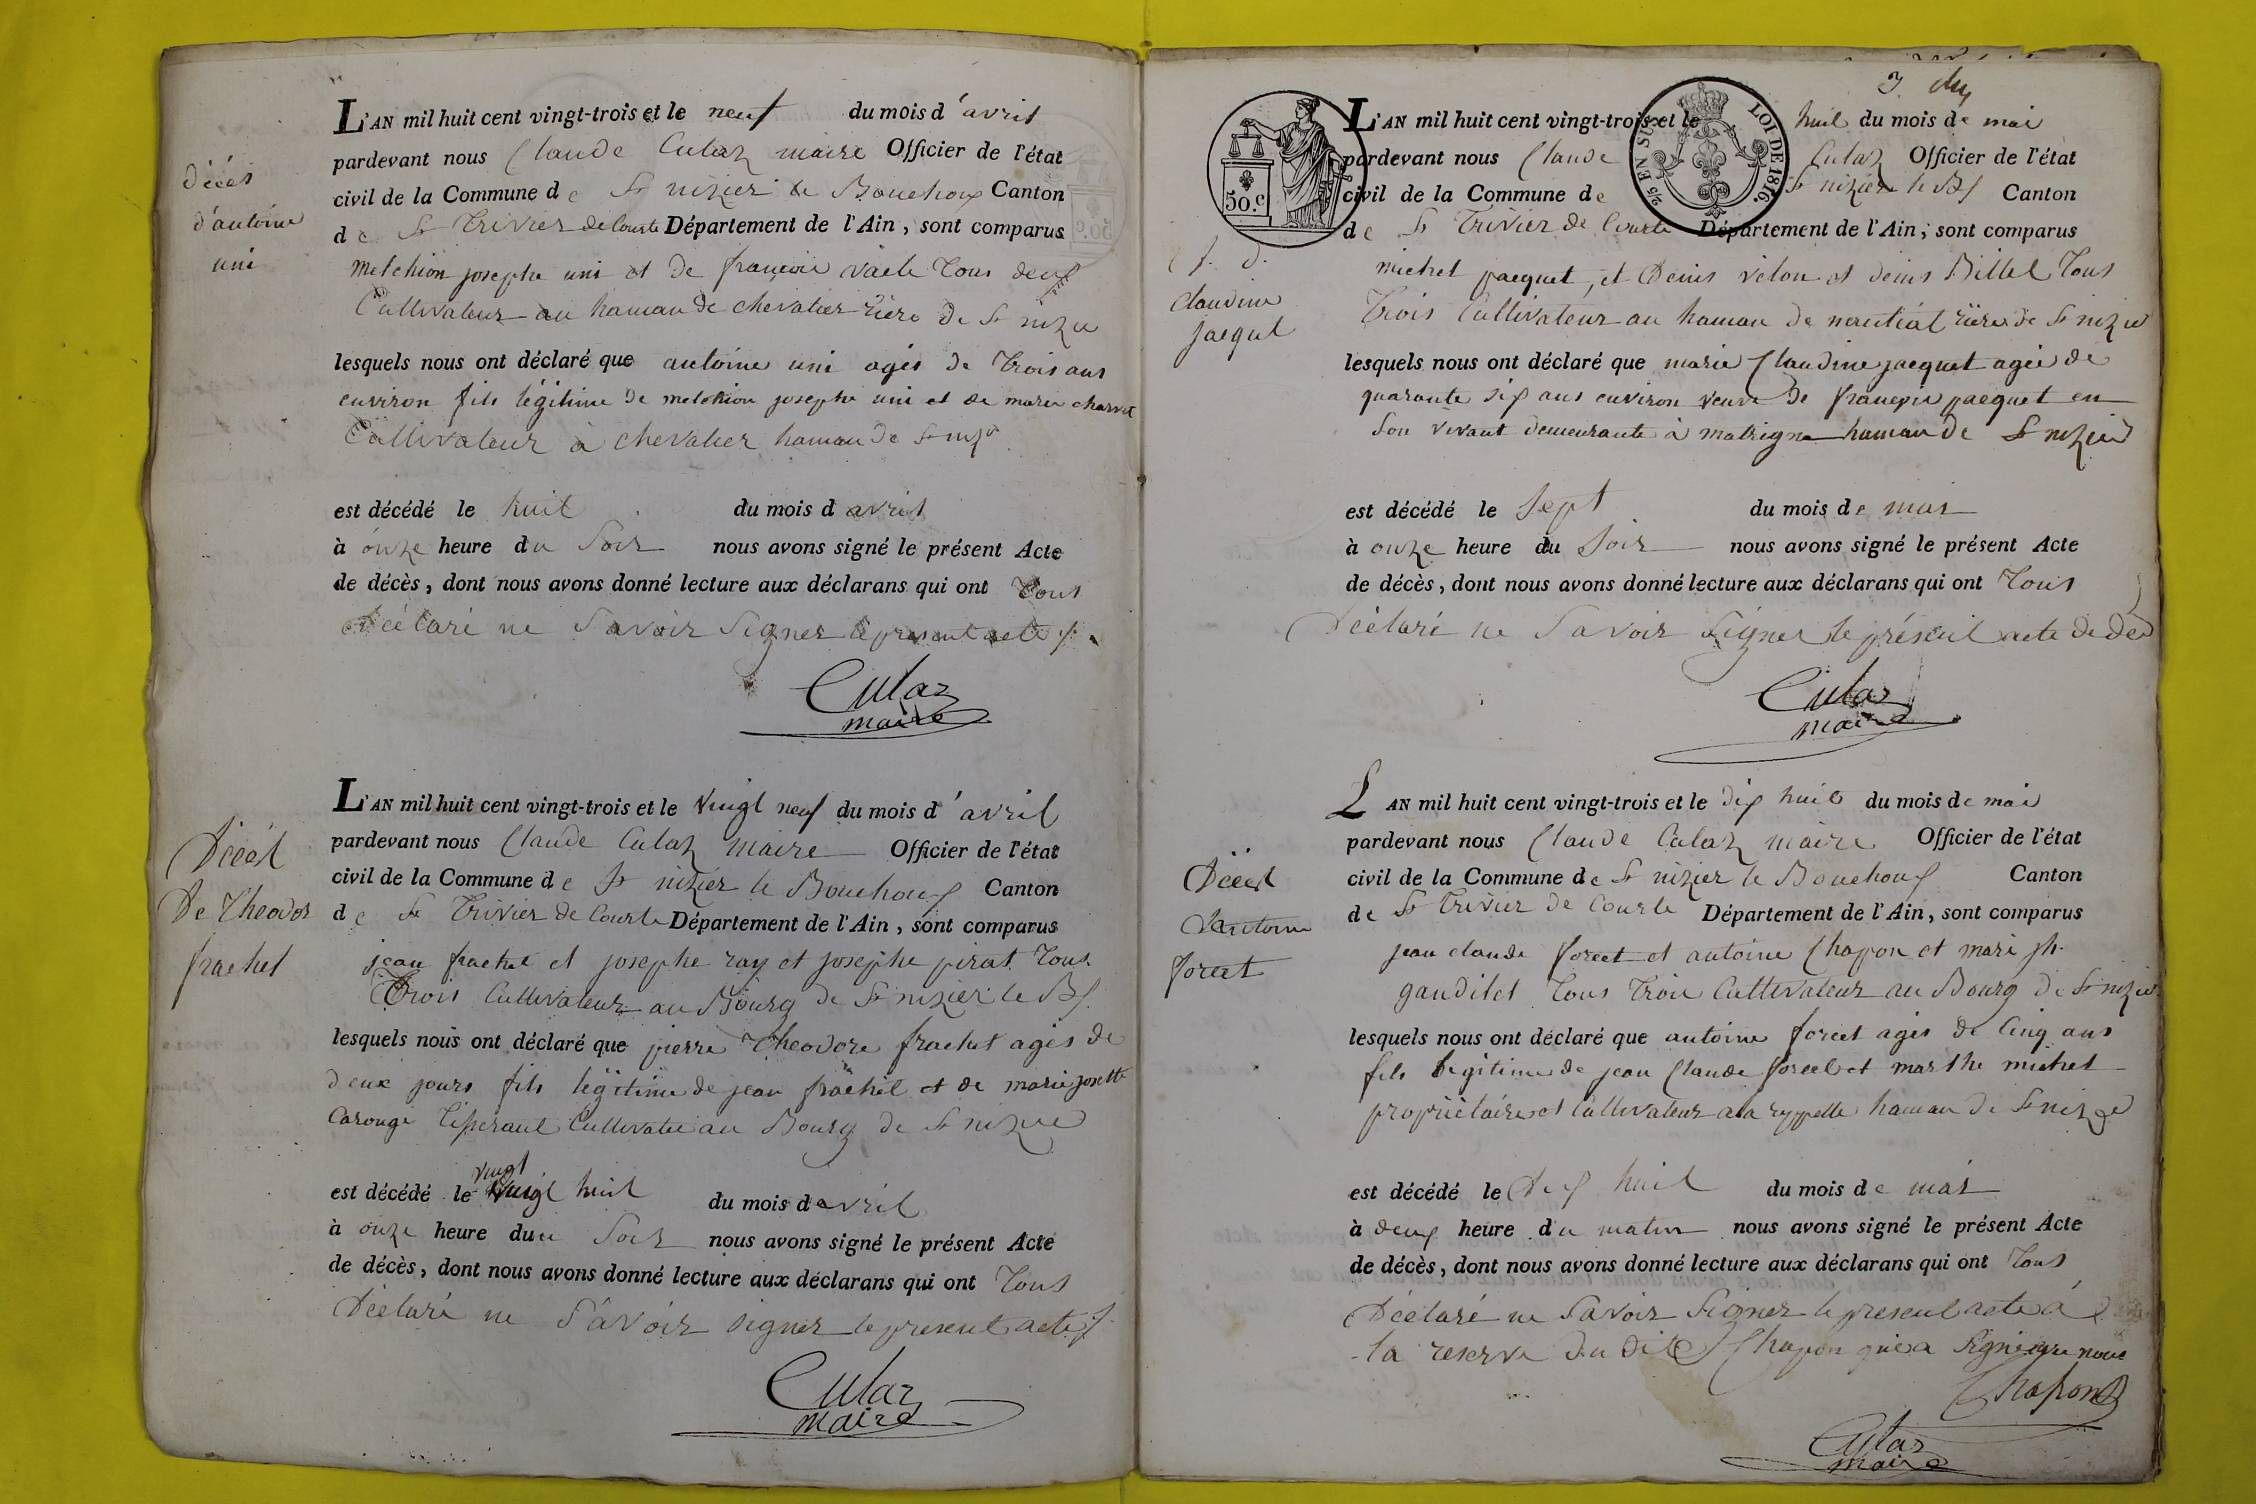 décés
d'antoine
uni
L'AN mil huit cent vingt-trois et le neuf du mois d'avril
pardevant nous Claude Culaz maire Officier de l'état
civil de la Commune de St nizier le Bouchoux Canton
de St Trivier de Courte Département de l'Ain, sont comparus
melchion josephe uni et de françois vaile Tous deux
Cultivateur au hamau de chevalier rière de St nizie
lesquels nous ont déclaré que antoine uni agés de Trois ans
environ fils légitime de melchion josephe uni et de marie charvet
Cultivateur à chevalier hamau de St niz
est décédé le huit du mois d avril
à onze heure du Soir nous avons signé le présent Acte
de décès, dont nous avons donné lecture aux déclarans qui ont Tous
Déclaré ne Savoir Signer le present acte
Culaz
maire
Décés
De Theodor
frachet
L'AN mil huit cent vingt-trois et le Vingt neuf du mois d'avril
pardevant nous Claude Culaz maire Officier de l'état
civil de la Commune de St nizier le Bouchoux Canton
de St Trivier de Courte Département de l'Ain, sont comparus
jean frachet et josephe ray et josephe pirat Tous
Trois Cultivateur au Bourg de St nizier le Bx
lesquels nous ont déclaré que pierre Theodore frachet agés de
deux jours fils légitime de jean frachet et de marie josette
Carouge Tisserant Cultivate au Bourg de St nizie
vingt
est décédé le vingt huit du mois d avril
à onze heure du Soir nous avons signé le présent Acte
de décès, dont nous avons donné lecture aux déclarans qui ont Tous
Déclaré ne Savoir signer le present acte
Culaz
maire
3.
50.c
2/5 EN SUS
LOI DE 1816.
Claudine
jaequet
L'AN mil huit cent vingt-trois et le huit du mois de mai
pardevant nous Claude Culaz Officier de l'état
civil de la Commune de St nizier le Bx Canton
de St Trivier de Courte Département de l'Ain, sont comparus
michel jaequet, et Denis velon et denis Billet Tous
Trois Cultivateur au hamau de rière de St nizie
lesquels nous ont déclaré que marie Claudine jaequet agée de
quarante six ans environ veuve de françois jaequet en
Son vivant demeurante à matrigna hamau de St nizie
est décédé le Sept du mois de mai
à onze heure du Soir nous avons signé le présent Acte
de décès, dont nous avons donné lecture aux déclarans qui ont Tous
Déclaré ne Savoir Signer le présent acte de
Culaz
maire
Décés
Dantoine
foreet
L'AN mil huit cent vingt-trois et le dix huit du mois de mai
pardevant nous Claude Culaz maire Officier de l'état
civil de la Commune de St nizier le Bouchoux Canton
de St Trivier de Courte Département de l'Ain, sont comparus
jean claude foreet et antoine Chapon et mari jh.
gaudilet Tous Trois Cultivateur au Bourg de St nizie
lesquels nous ont déclaré que antoine foreet agés de Cinq ans
fils Legitime de jean Claude foreet et marthe michel
propriétaire et Cultivateur a la hamau de St nizie
est décédé le Dix huit du mois de mai
à deux heure du matin nous avons signé le présent Acte
de décès, dont nous avons donné lecture aux déclarans qui ont Tous
Déclaré ne Savoir Signer le present acte à
la reserve du dit Chapon qui a Signé nous
Chapon
Culaz
maire